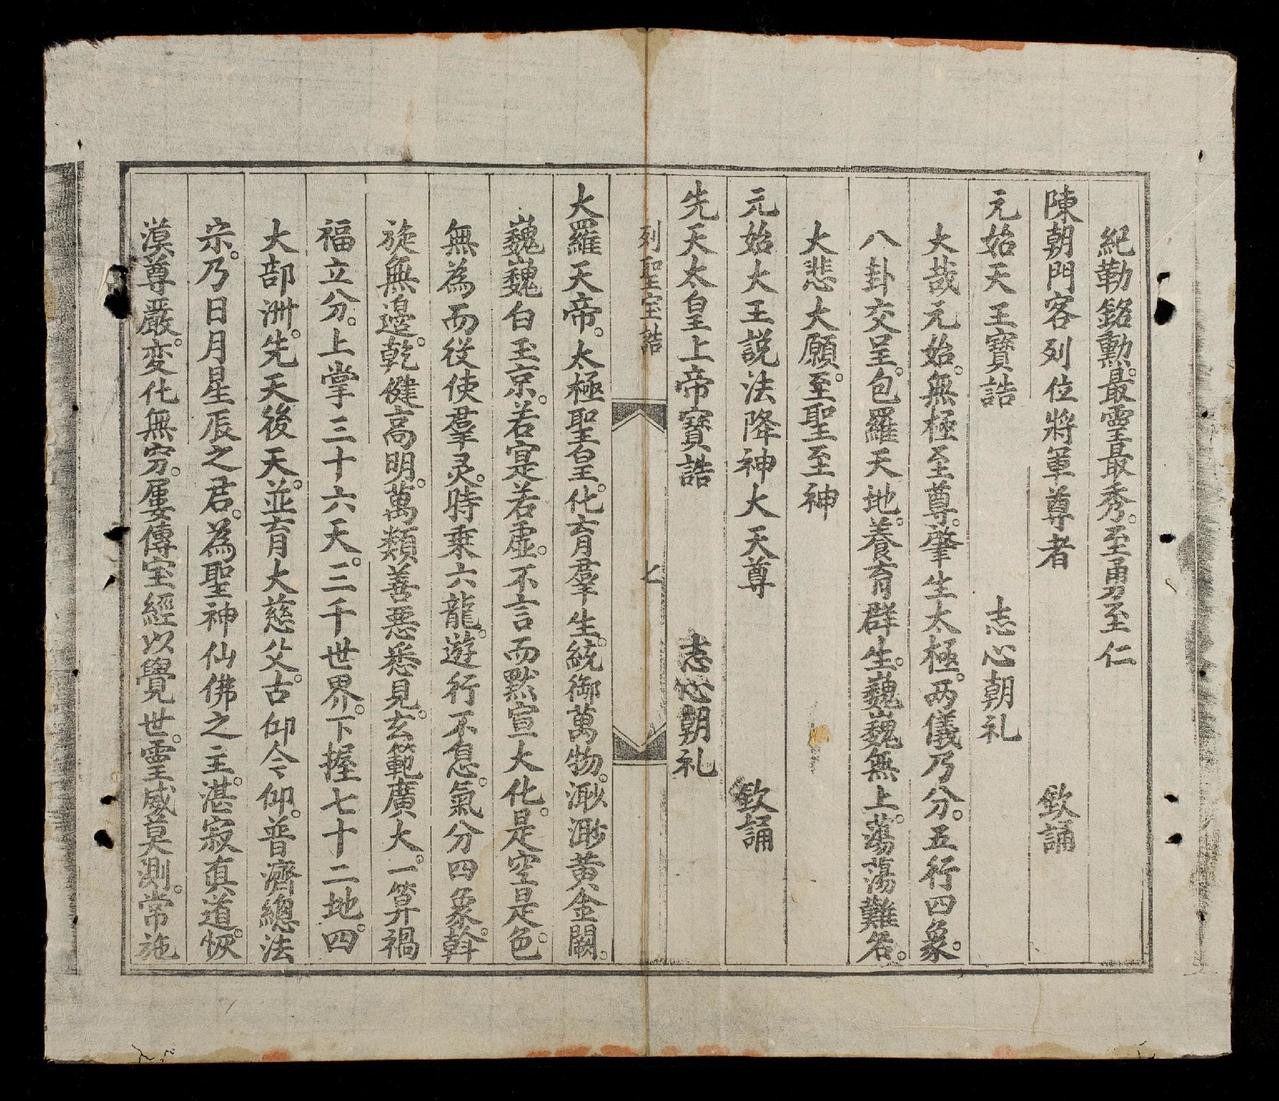 紀勒銘勲。最霊最秀。至勇至仁
陳朝門客列位將軍尊者 欽誦
元始天王寳誥 志心朝礼
大哉元始。無極至尊。肇生太極。两儀乃分。五行四象。
八卦交呈。包羅天地。養育群生。巍巍無上。蕩蕩難名。
大悲大願。至聖至神
元始大王説法降神大天尊 欽誦
先天太皇上帝寳誥 志心朝礼
列聖宝誥 七
大羅天帝。太極聖皇。化育羣生。統御萬物。渺渺黄金闕。
巍巍白玉京。若寔若虛。不言而默宣大化。是空是色。
無為而役使羣灵。時乗六龍。遊行不息。氣分四象。斡
旋無邉。乾健高明。萬類善悪悉見。玄範廣大。一算禍
福立分。上掌三十六天。三千世界。下握七十二地。四
大部洲。先天後天。並育大慈父。古仰今仰。普濟總法
宗。乃日月星辰之君。為聖神仙佛之主。湛寂真道。恢
漠尊嚴。変化無穷。屢傳宝經以覺世。霊威莫測。常施